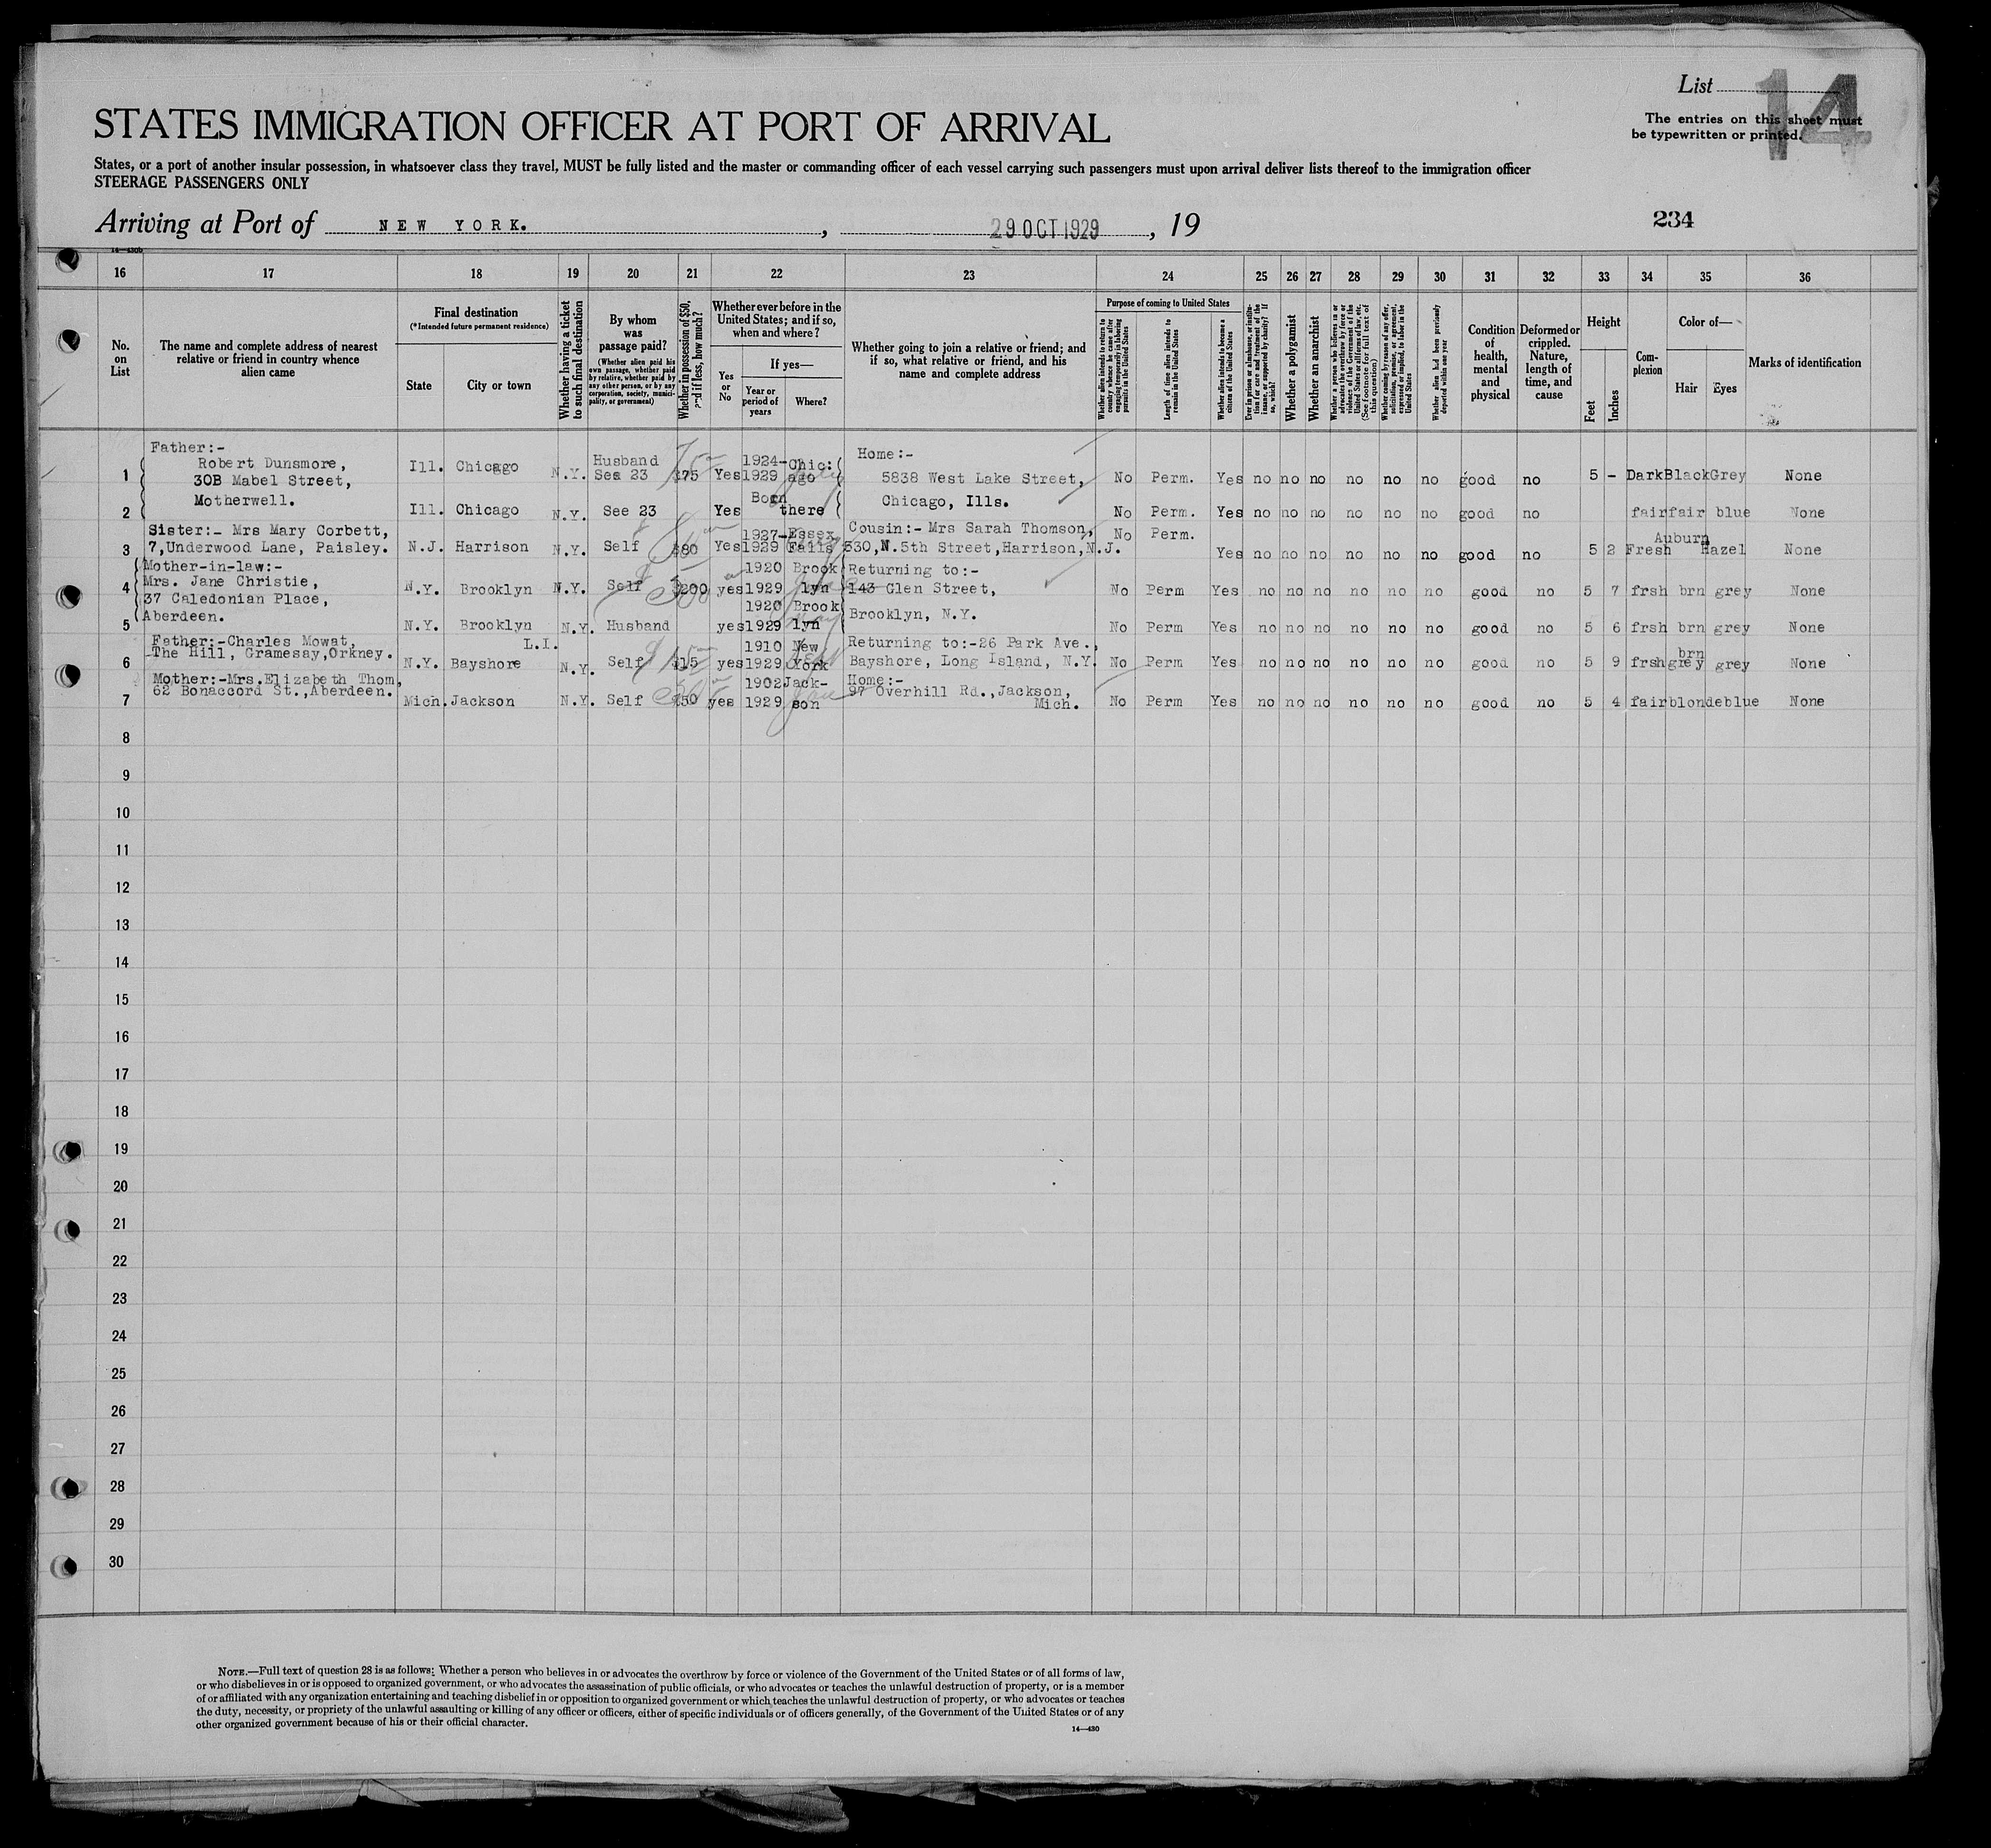 List
14
The entries on this sheet must
be typewritten or printed.
STATES IMMIGRATION OFFICER AT PORT OF ARRIVAL
States, or a port of another insular possession, in whatsoever class they travel, MUST be fully listed and the master or commanding officer of each vessel carrying such passengers must upon arrival deliver lists thereof to the immigration officer
STEERAGE PASSENGERS ONLY
Arriving at Port of NEW YORK. , 29 OCT 1929 , 19
234
14—430b
16 17 18 19 20 21 22 23 24 25 26 27 28 29 30 31 32 33 34 35 36
No. on List
The name and complete address of nearest
relative or friend in country whence
alien came
Final destination
(*Intended future permanent residence)
State
City or town
Whether having a ticket
to such final destination
By whom
was
passage paid?
(Whether alien paid his
own passage, whether paid
by relative, whether paid by
any other person, or by any
corporation, society, munici-
pality, or government)
Whether in possession of $50,
and if less, how much?
Whether ever before in the
United States; and if so,
when and where?
Yes
or
No
If yes—
Year or
period of
years
Where?
Whether going to join a relative or friend; and
if so, what relative or friend, and his
name and complete address
Purpose of coming to United States
Whether alien intends to return to
country whence he came after
engaging temporarily in laboring
pursuits in the United States
Length of time alien intends to
remain in the United States
Whether alien intends to become a
citizen of the United States
Ever in prison or almshouse, or institu-
tion for care and treatment of the
insane, or supported by charity? If
so, which?
Whether a polygamist
Whether an anarchist
Whether a person who believes in or
advocates the overthrow by force or
violence of the Government of the
United States or all forms of law, etc.
(See footnote for full text of
this question)
Whether coming by reason of any offer,
solicitation, promise, or agreement,
expressed or implied, to labor in the
United States
Whether alien had been previously
deported within one year
Condition
of
health,
mental
and
physical
Deformed or
crippled.
Nature,
length of
time, and
cause
Height
Feet
Inches
Com-
plexion
Color of—
Hair
Eyes
Marks of identification
Father:-
Robert Dunsmore,
30B Mabel Street,
Motherwell.
1 Ill. Chicago N.Y. Husband See 23 $75 Yes 1924-1929 Chic:ago
Home:-
5838 West Lake Street,
Chicago, Ills.
No Perm. Yes no no no no no no good no 5 - Dark Black Grey None
2 Ill. Chicago N.Y. See 23 Yes Born there No Perm. Yes no no no no no no good no fair fair blue None
Sister:- Mrs Mary Corbett,
7, Underwood Lane, Paisley.
3 N.J. Harrison N.Y. Self $80 Yes 1927-1929 Essex Falls
Cousin:- Mrs Sarah Thomson,
530, N.5th Street, Harrison, N.J.
No Perm. Yes no no no no no no good no 5 2 Fresh Auburn Hazel None
Mother-in-law:-
Mrs. Jane Christie,
37 Caledonian Place,
Aberdeen.
4 N.Y. Brooklyn N.Y. Self $200 yes 1920 1929 Brooklyn
Returning to:-
143 Glen Street,
Brooklyn, N.Y.
No Perm Yes no no no no no no good no 5 7 frsh brn grey None
5 N.Y. Brooklyn N.Y. Husband yes 1920 1929 Brooklyn No Perm Yes no no no no no no good no 5 6 frsh brn grey None
Father:-Charles Mowat,
The Hill, Gramesay, Orkney.
6 N.Y. Bayshore L.I. N.Y. Self $15 yes 1910 1929 New York
Returning to:-26 Park Ave.,
Bayshore, Long Island, N.Y.
No Perm Yes no no no no no no good no 5 9 frsh brn grey grey None
Mother:-Mrs.Elizabeth Thom,
62 Bonaccord St., Aberdeen.
7 Mich. Jackson N.Y. Self $50 yes 1902 1929 Jackson
Home:-
97 Overhill Rd., Jackson,
Mich.
No Perm Yes no no no no no no good no 5 4 fair blonde blue None
8
9
10
11
12
13
14
15
16
17
18
19
20
21
22
23
24
25
26
27
28
29
30
NOTE.—Full text of question 28 is as follows: Whether a person who believes in or advocates the overthrow by force or violence of the Government of the United States or of all forms of law,
or who disbelieves in or is opposed to organized government, or who advocates the assassination of public officials, or who advocates or teaches the unlawful destruction of property, or is a member
of or affiliated with any organization entertaining and teaching disbelief in or opposition to organized government or which teaches the unlawful destruction of property, or who advocates or teaches
the duty, necessity, or propriety of the unlawful assaulting or killing of any officer or officers, either of specific individuals or of officers generally, of the Government of the United States or of any
other organized government because of his or their official character.
14—430